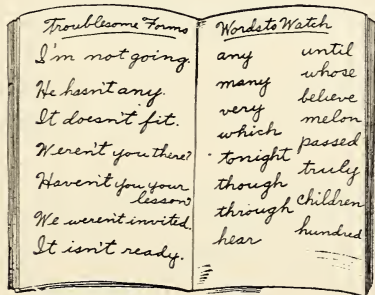 Troublesome Forms
I'm not going.
He hasn't any.
It doesn't fit.
Weren't you there?
Haven't you your
lesson
We weren't invited.
It isn't ready.
Words to Watch
any
many
very
which
tonight
though
through
hear
until
whose
believe
melon
passed
truly
children
hundred